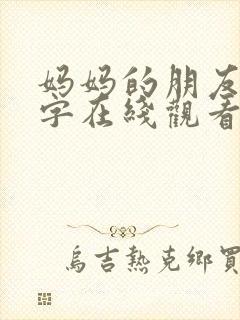 妈妈的朋友
字在綫觀看
烏吉熱克鄉買